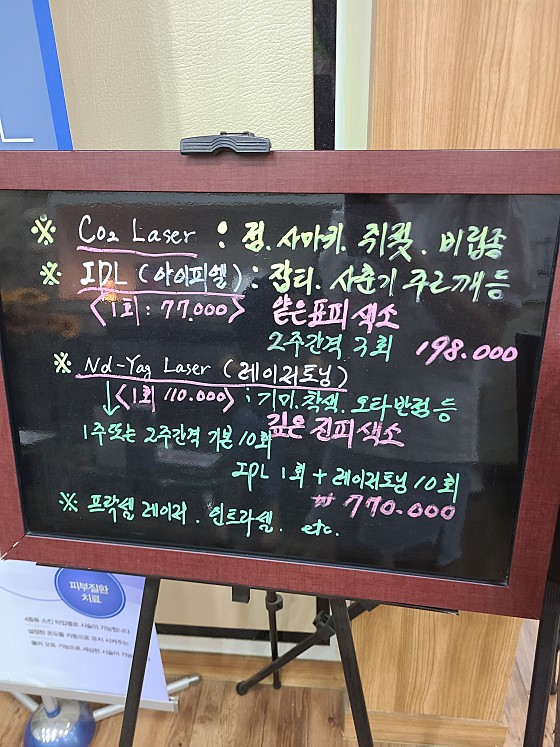 ※ CO2 Laser : 점. 사마귀. 쥐젖. 비립종
※ IPL (아이피엘) : 잡티. 사춘기 주근깨 등
<1회 : 77.000> 얕은 표피 색소
2주간격 3회 198.000
※ Nd-Yag Laser (레이저토닝)
↓ <1회 110.000> : 기미. 착색. 오타반점 등
1주또는 2주간격 기본 10회 깊은 진피 색소
IPL 1회 + 레이저토닝 10회
₩ 770.000
※ 프락셀 레이저. 인트라셀. etc.
피부질환
치료